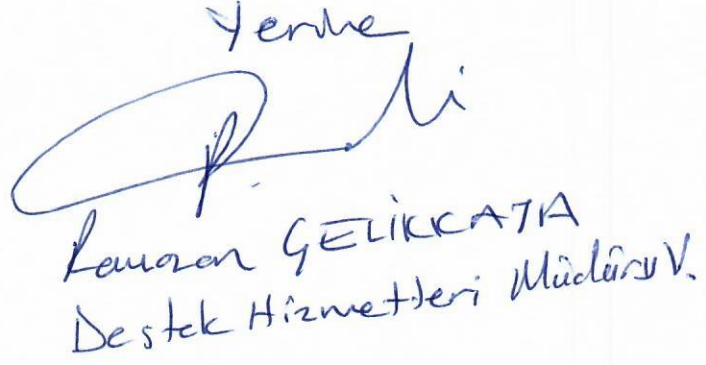 Yerine
Ramazan ÇELİKKAYA
Destek Hizmetleri Müdürü V.